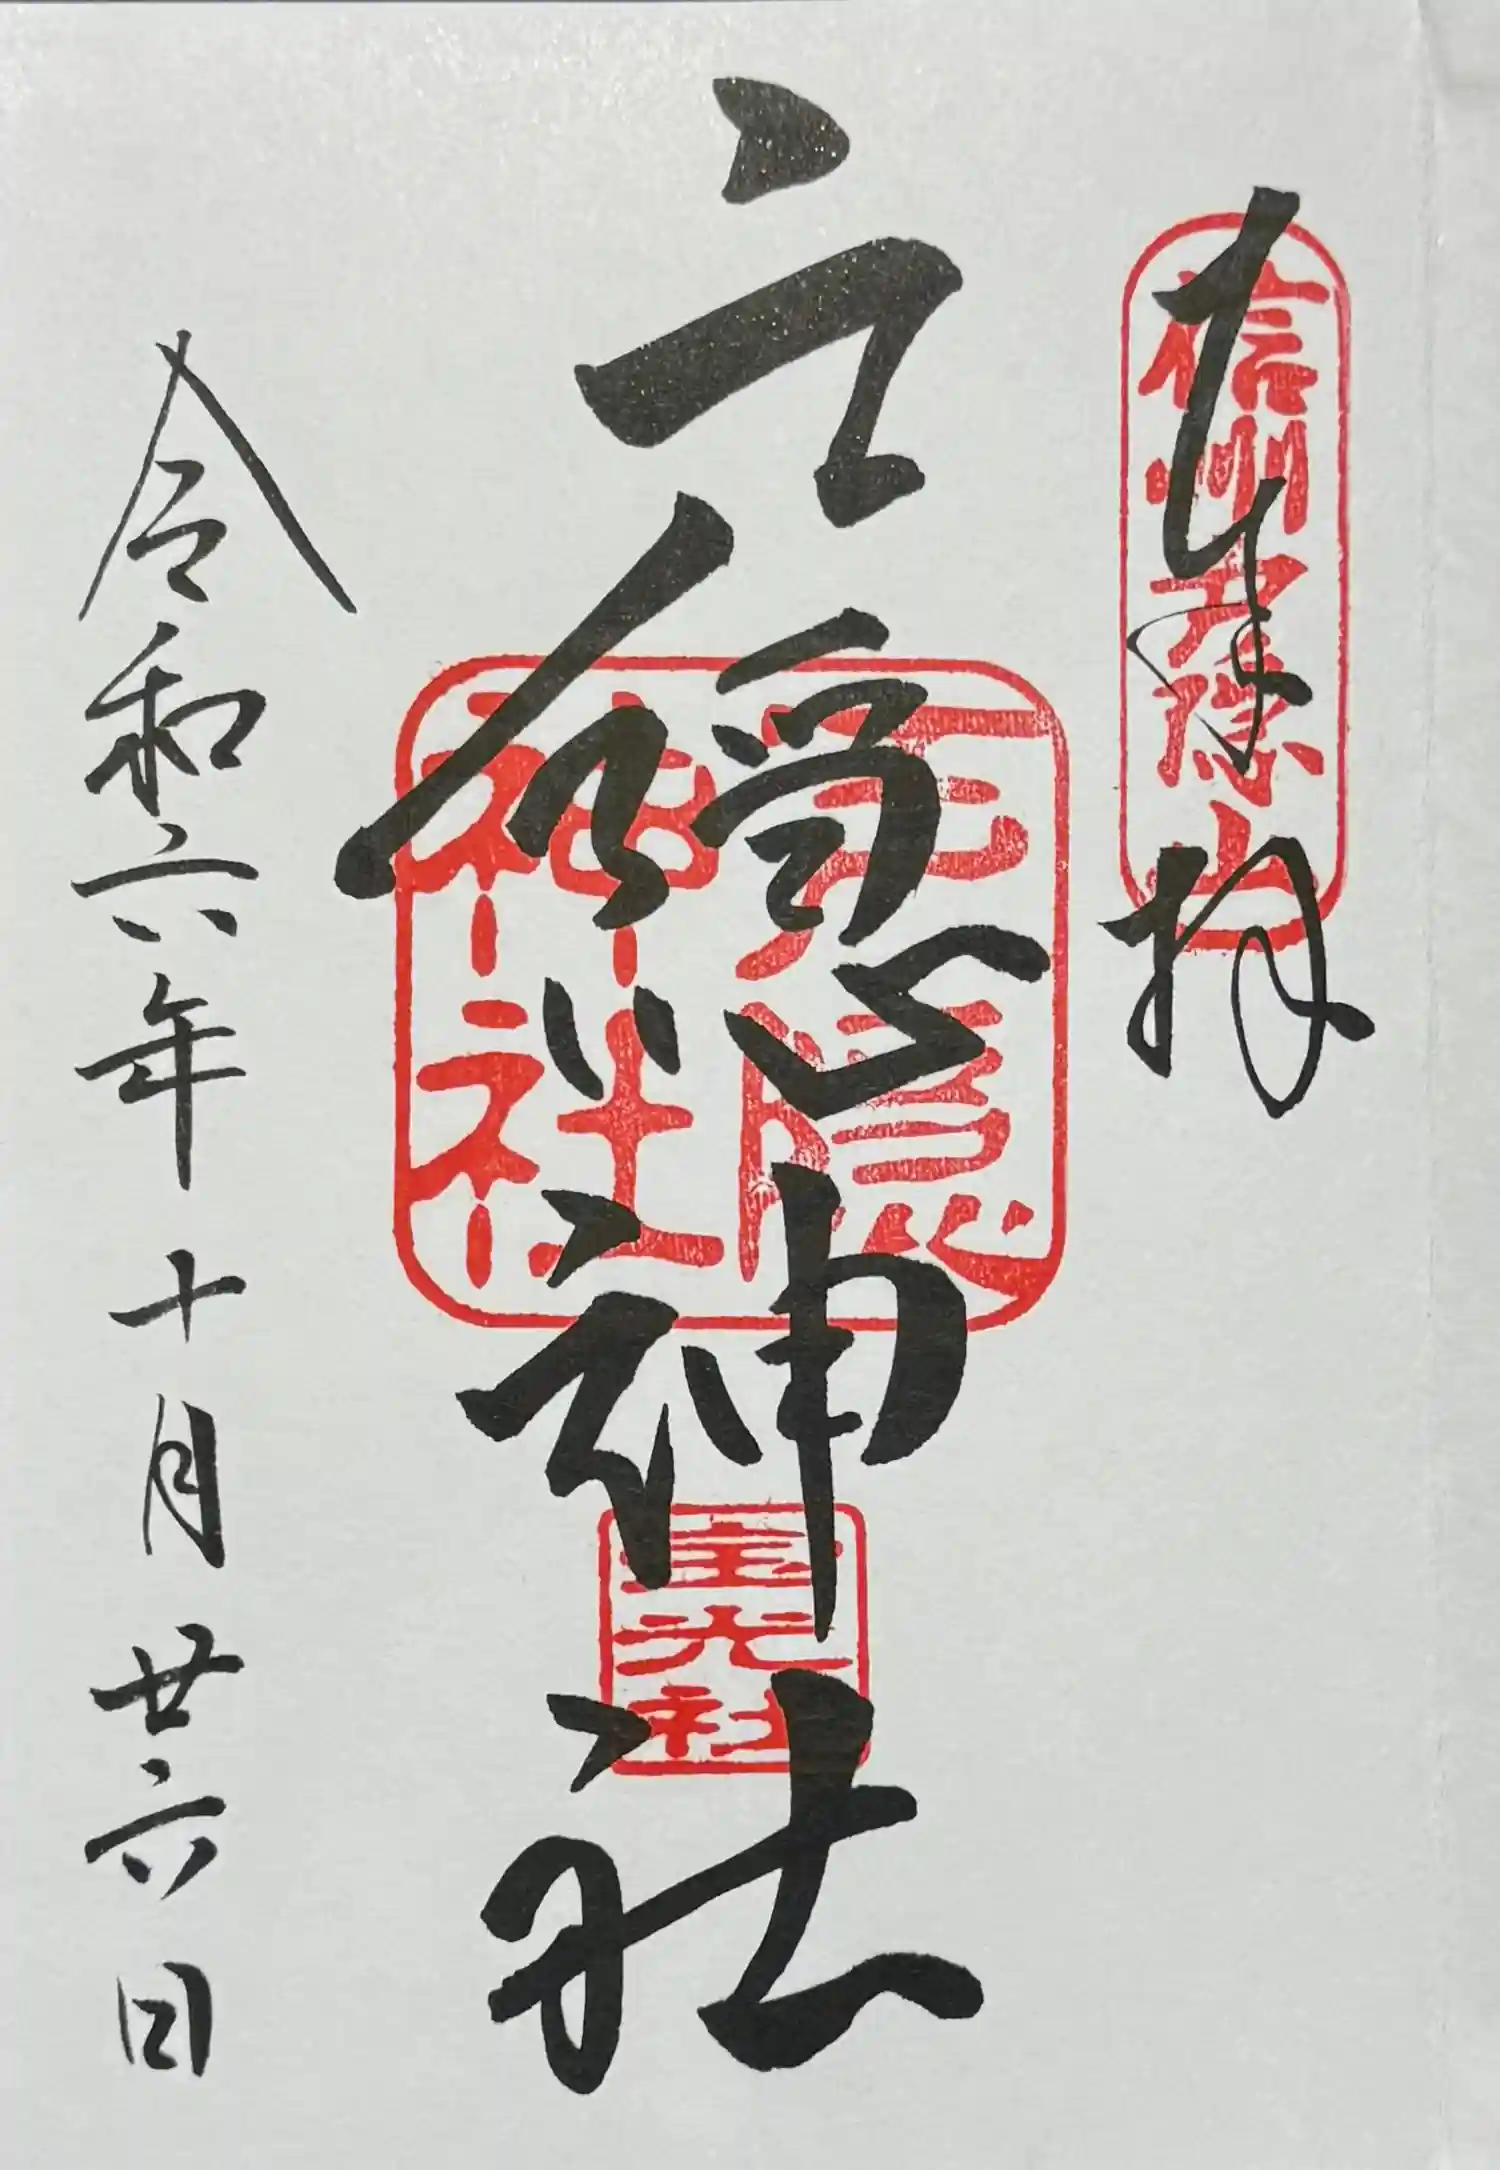 奉拝
信州戸隠山
戸隠神社
戸隠神社
宝光社
令和六年十月廿六日